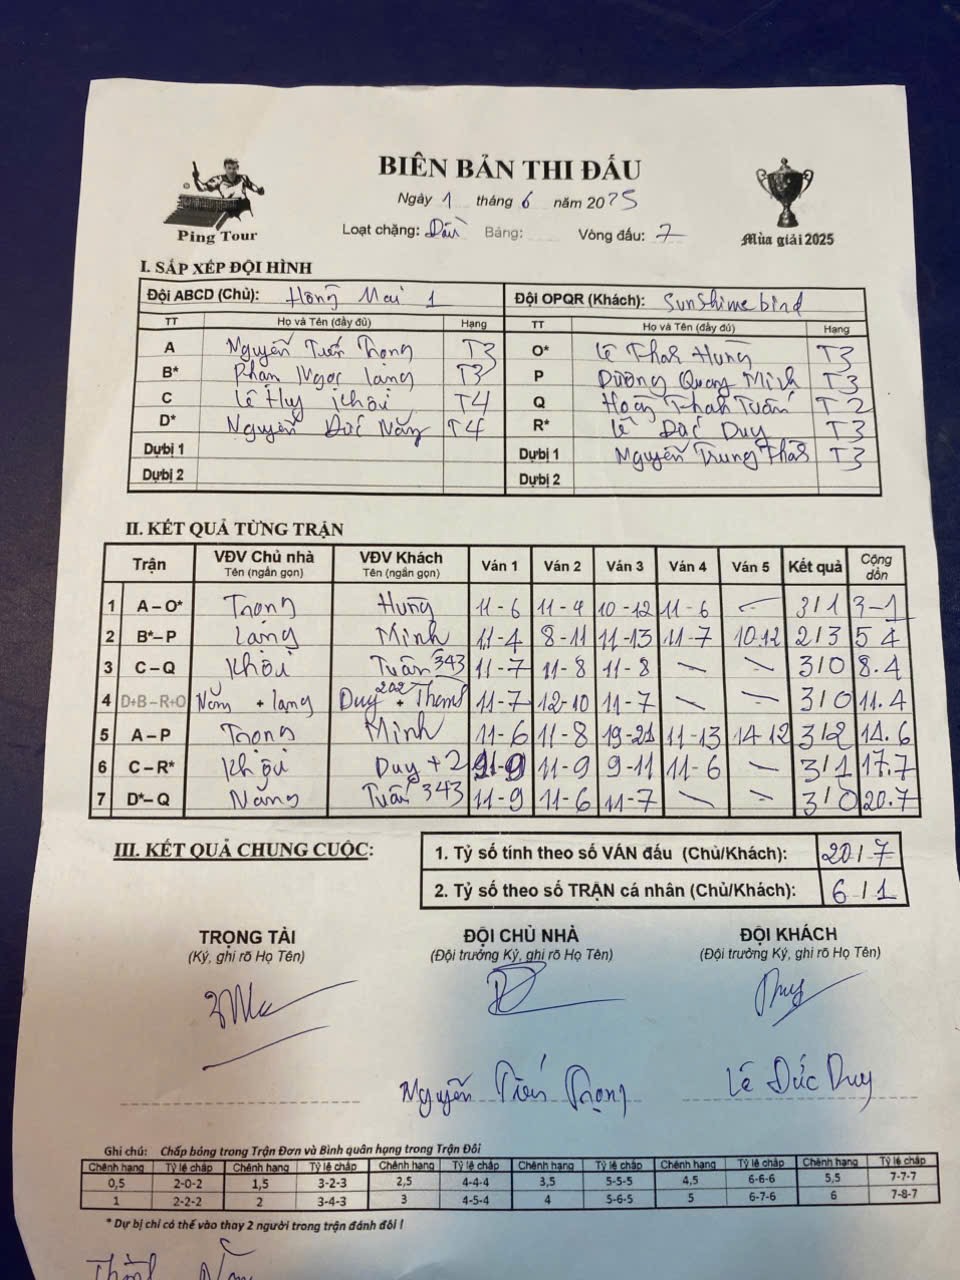 BIÊN BẢN THI ĐẤU
Ping Tour
Mùa giải 2025
Ngày 1 tháng 6 năm 2025
Loạt chặng: Bảng: Vòng đấu: 7
I. SẮP XẾP ĐỘI HÌNH
Đội ABCD (Chủ): Hồng Mai 1 Đội OPQR (Khách): Sunshimebird
TT Họ và Tên (đầy đủ) Hạng TT Họ và Tên (đầy đủ) Hạng
A Nguyễn Tuấn Trọng T3 O* Lê Thành Hưng T3
B* Phan Ngọc Lạng T3 P Dương Quang Minh T3
C Lê Huy Khôi T4 Q Hoàng Thanh Tuấn T2
D* Nguyễn Đức Năng T4 R* Lê Đức Duy T3
Dựbị 1 Dựbị 1 Nguyễn Trung Thành T3
Dựbị 2 Dựbị 2
II. KẾT QUẢ TỪNG TRẬN
Trận VĐV Chủ nhà Tên (ngắn gọn) VĐV Khách Tên (ngắn gọn) Ván 1 Ván 2 Ván 3 Ván 4 Ván 5 Kết quả Cộng dồn
1 A – O* Trọng Hưng 11-6 11-4 10-12 11-6 - 3/1 3-1
2 B* – P Lạng Minh 11-4 8-11 11-13 11-7 10.12 2/3 5.4
3 C – Q Khôi Tuấn 343 11-7 11-8 11-8 - - 3/0 8.4
4 D+B – R+O Năng + Lạng Duy 202 + Thành 11-7 12-10 11-7 - - 3/0 11.4
5 A – P Trọng Minh 11-6 11-8 19-21 11-13 14-12 3/2 14.6
6 C – R* Khôi Duy +2 11-9 11-9 9-11 11-6 - 3/1 17.7
7 D* – Q Năng Tuấn 343 11-9 11-6 11-7 - - 3/0 20.7
III. KẾT QUẢ CHUNG CUỘC:
1. Tỷ số tính theo số VÁN đấu (Chủ/Khách): 20/7
2. Tỷ số theo số TRẬN cá nhân (Chủ/Khách): 6/1
TRỌNG TÀI ĐỘI CHỦ NHÀ ĐỘI KHÁCH
(Ký, ghi rõ Họ Tên) (Đội trưởng Ký, ghi rõ Họ Tên) (Đội trưởng Ký, ghi rõ Họ Tên)
Duy
Nguyễn Tiến Trọng Lê Đức Duy
Ghi chú: Chấp bóng trong Trận Đơn và Bình quân hạng trong Trận Đôi
Chênh hạng Tỷ lệ chấp Chênh hạng Tỷ lệ chấp Chênh hạng Tỷ lệ chấp Chênh hạng Tỷ lệ chấp Chênh hạng Tỷ lệ chấp Chênh hạng Tỷ lệ chấp
0,5 2-0-2 1,5 3-2-3 2,5 4-4-4 3,5 5-5-5 4,5 6-6-6 5,5 7-7-7
1 2-2-2 2 3-4-3 3 4-5-4 4 5-6-5 5 6-7-6 6 7-8-7
* Dự bị chỉ có thể vào thay 2 người trong trận đánh đôi !